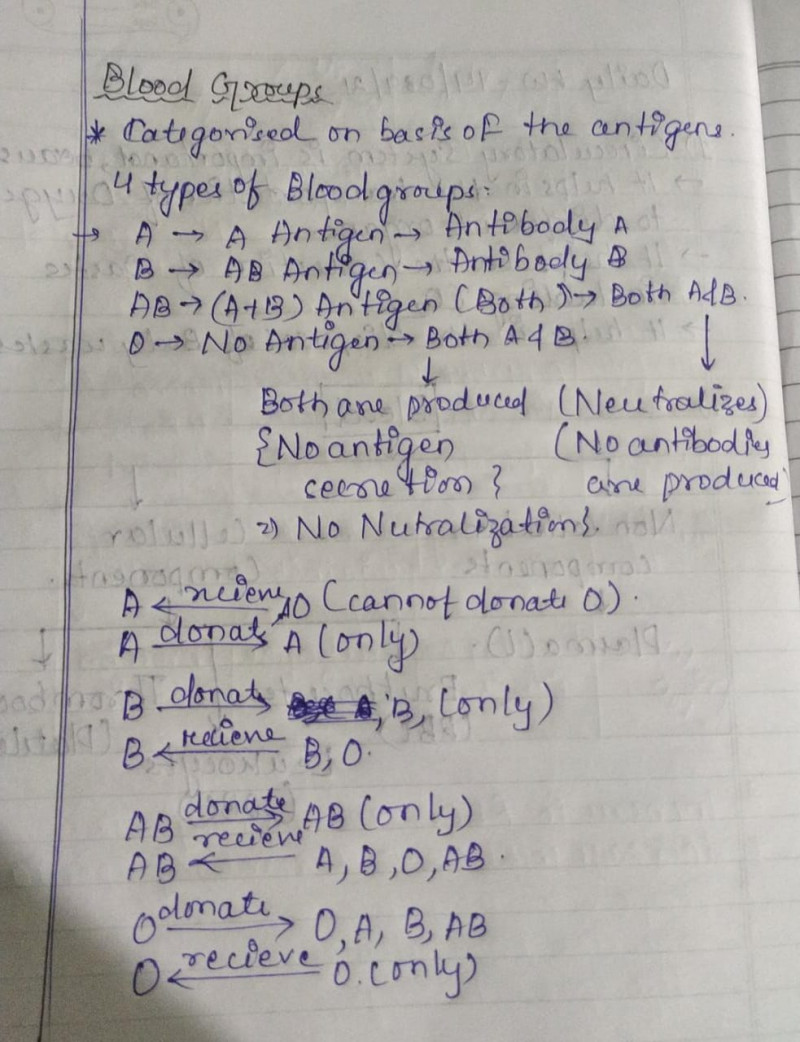 Blood Groups
* Categorised on basis of the antigens.
4 types of Blood groups:
→ A → A Antigen → Antibody A
B → AB Antigen → Antibody B
AB → (A+B) Antigen (Both) → Both A&B.
O → No Antigen → Both A & B.
↓ ↓
Both are produced (Neutralizes)
{No antigen (No antibodies
cecretion} are produced)
2) No Nutralization}.
A ←recieve AO (cannot donate O).
A donate→ A (only)
B donate→ , B, (only)
B ←recieve B, O.
AB donate→ AB (only)
AB ←recieve A, B, O, AB.
O donate→ O, A, B, AB
O ←recieve O. (only)